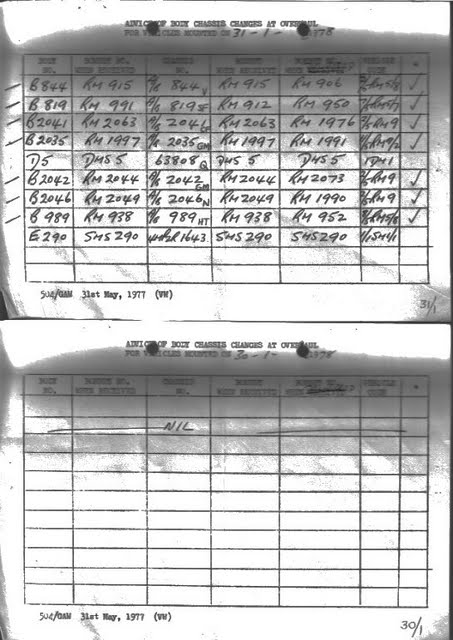 ADVICE OF BODY CHASSIS CHANGES AT OVERHAUL
FOR VEHICLES MOUNTED ON 31-1-1978
BODY NO. BONNET NO. WHEN RECEIVED CHASSIS NO. BONNET WHEN RECEIVED BONNET NO. VEHICLE CODE
B844 RM 915 844 V RM 915 RM 906 ✓
B 819 RM 991 819 RM 912 RM 950 ✓
B2041 RM 2063 2046 RM 2063 RM 1976 RM9 ✓
B2035 RM 1997 2035 GM RM 1997 RM 1991 ✓
D5 DMS 5 63808 Q DMS 5 DMS 5 1DM1
B2042 RM 2044 2042 GM RM 2044 RM 2073 RM9 ✓
B2046 RM 2049 2046 N RM 2049 RM 1990 RM9 ✓
B 989 RM 938 989 HT RM 938 RM 952 ✓
E290 SMS 290 1643 SMS 290 SMS 290
504/GAW 31st May, 1977 (VW)
31/1
ADVICE OF BODY CHASSIS CHANGES AT OVERHAUL
FOR VEHICLES MOUNTED ON 30-1-1978
BODY NO. BONNET NO. WHEN RECEIVED CHASSIS NO. BONNET WHEN RECEIVED BONNET NO. VEHICLE CODE
NIL
504/GAW 31st May, 1977 (VW)
30/1